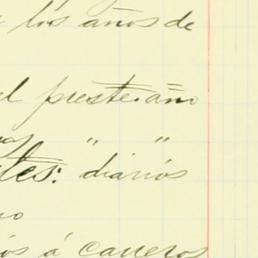 los años de
el preste. año
" "
tes: diários
io
ós á carreros